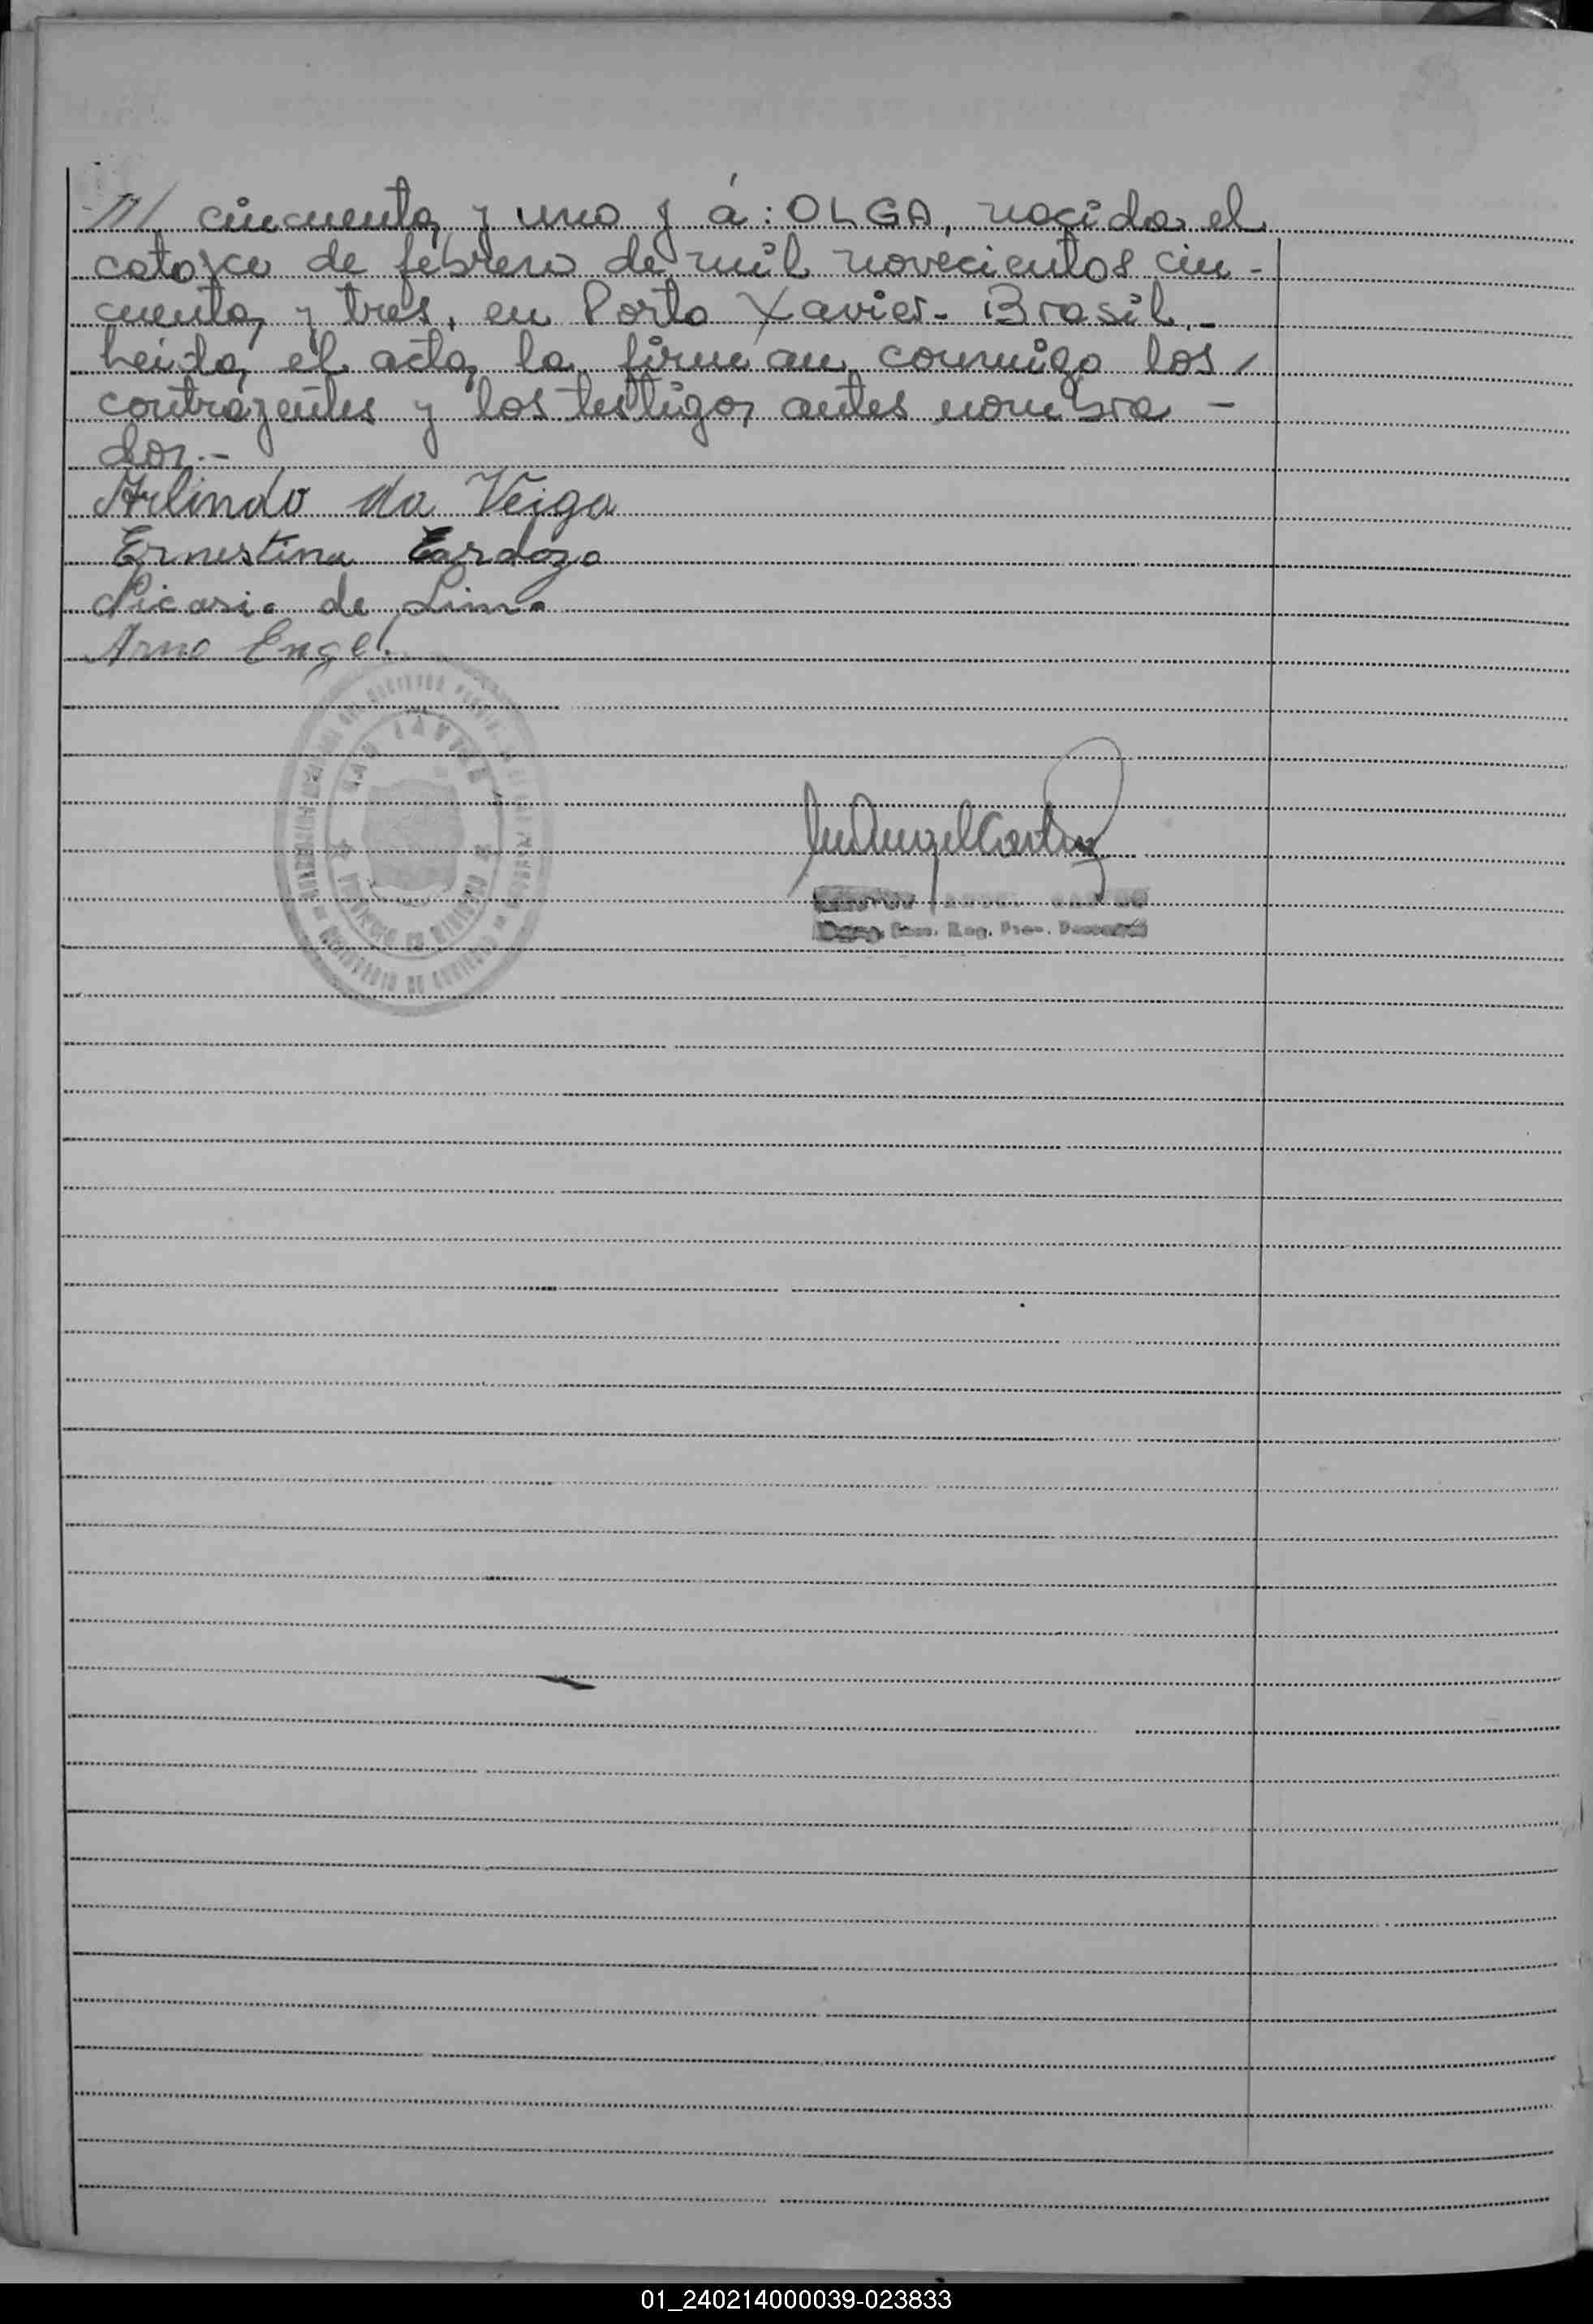 /// cincuenta y uno y á: OLGA, nacida el
catorce de febrero de mil novecientos cin-
cuenta y tres, en Porto Xavier- Brasil.-
Leida el acta la firman conmigo los /
contrayentes y los testigos antes nombra-
dos.-
Arlindo da Veiga
Ernestina Cardozo
Licario de Lima
Arno Engel.
SAN JAVIER
01_240214000039-023833